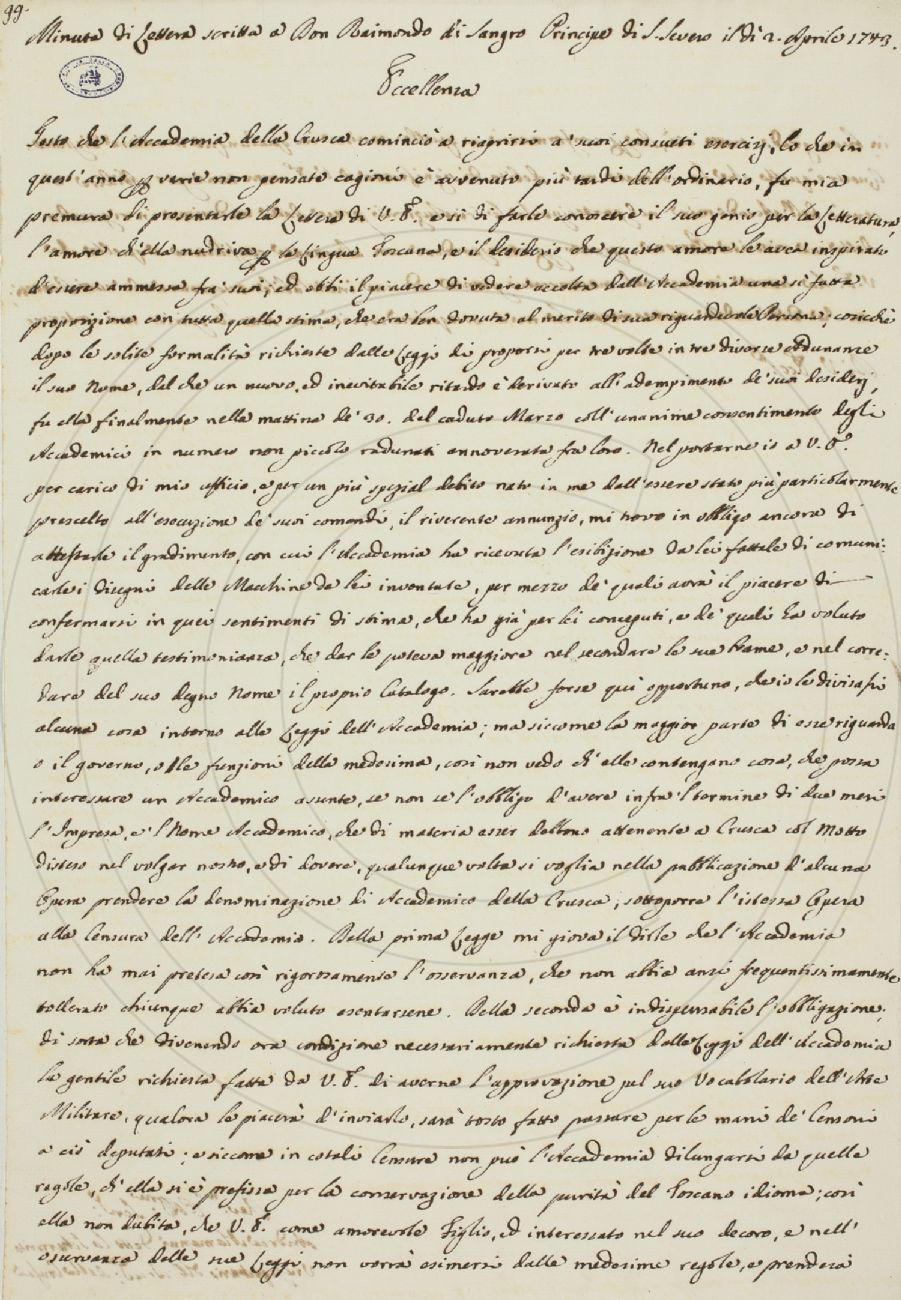 99.
Minuta di Lettera scritta a Don Raimondo di Sangro Principe di S. Severo il dì 2. Aprile 1743.
Eccellenza
Tosto che l'Accademia della Crusca cominciò a riaprirsi a' suoi consueti esercizj, lo che in
quest'anno per varie non pensate cagioni è avvenuto più tardi dell'ordinario, fu mia
premura di presentarle la Lettera di V. E. e sì di farle conoscere il suo genio per la Letteratura,
l'amore ch'ella nudriva per la Lingua Toscana, e il desiderio che questo amore le avea inspirato
d'essere ammessa fra' suoi; ed ebbi il piacere di vedere accolta dall'Accademia una sì fatta
proposizione con tutta quella stima, che era ben dovuta al merito di sua riguardevole Persona; cosicchè
dopo le solite formalità richieste dalle Leggi di proporsi per tre volte in tre diverse Adunanze
il suo Nome, del che un nuovo, ed inevitabile ritardo è derivato all'adempimento de' suoi desiderj,
fu ella finalmente nella mattina de' 30. del caduto Marzo coll'unanime consentimento degli
Accademici in numero non piccolo radunati annoverata fra loro. Nel portarne io a V. E.
per carico di mio ufficio, e per un più spezial debito nato in me dall'essere stato più particolarmente
prescelto all'esecuzione de' suoi comandi, il riverente annunzio, mi trovo in obbligo ancora di
attestarle il gradimento, con cui l'Accademia ha ricevuta l'esibizione da lei fattale di comuni-
carle i disegni delle Macchine da lei inventate, per mezzo de' quali avrà il piacere di
confermarsi in quei sentimenti di stima, che ha già per lei conceputi, e de' quali ha voluto
darle quella testimonianza, che dar le poteva maggiore nel secondare le sue brame, e nel corre-
dare del suo degno Nome il proprio Catalogo. Sarebbe forse quì opportuno, che io le divisassi
alcuna cosa intorno alle Leggi dell'Accademia; ma siccome la maggior parte di esse riguarda
o il governo, o le funzioni della medesima, così non vedo ch'elle contengano cosa, che possa
interessare un Accademico assente, se non se l'obbligo d'avere infra 'l termine di due mesi
l'Impresa, e 'l Nome Accademico, che di materia esser debbono attenente a Crusca col Motto
disteso nel volgar nostro, e di dovere, qualunque volta si voglia nella pubblicazione d'alcuna
Opera prendere la denominazione di Accademico della Crusca, sottoporre l'istessa Opera
alla Censura dell'Accademia. Della prima Legge mi giova il dirle che l'Accademia
non ha mai pretesa così rigorosamente l'osservanza, che non abbia anzi frequentissimamente
tollerato chiunque abbia voluto esentarsene. Della seconda è indispensabile l'obbligazione;
di sorta che divenendo ora condizione necessariamente richiesta dalle Leggi dell'Accademia
la gentile richiesta fatta da V. E. di averne l'approvazione pel suo Vocabolario dell'Arte
Militare, qualora le piacerà d'inviarlo, sarà tosto fatto passare per le mani de' Censori
a ciò deputati; e siccome in cotali Censure non può l'Accademia dilungarsi da quelle
regole, ch'ella si è prefissa per la conservazione della purità del Toscano idioma; così
ella non dubita, che V. E. come amorevole Figlio, ed interessato nel suo decoro, e nell'
osservanza delle sue Leggi non vorrà esimersi dalle medesime regole, e prenderà